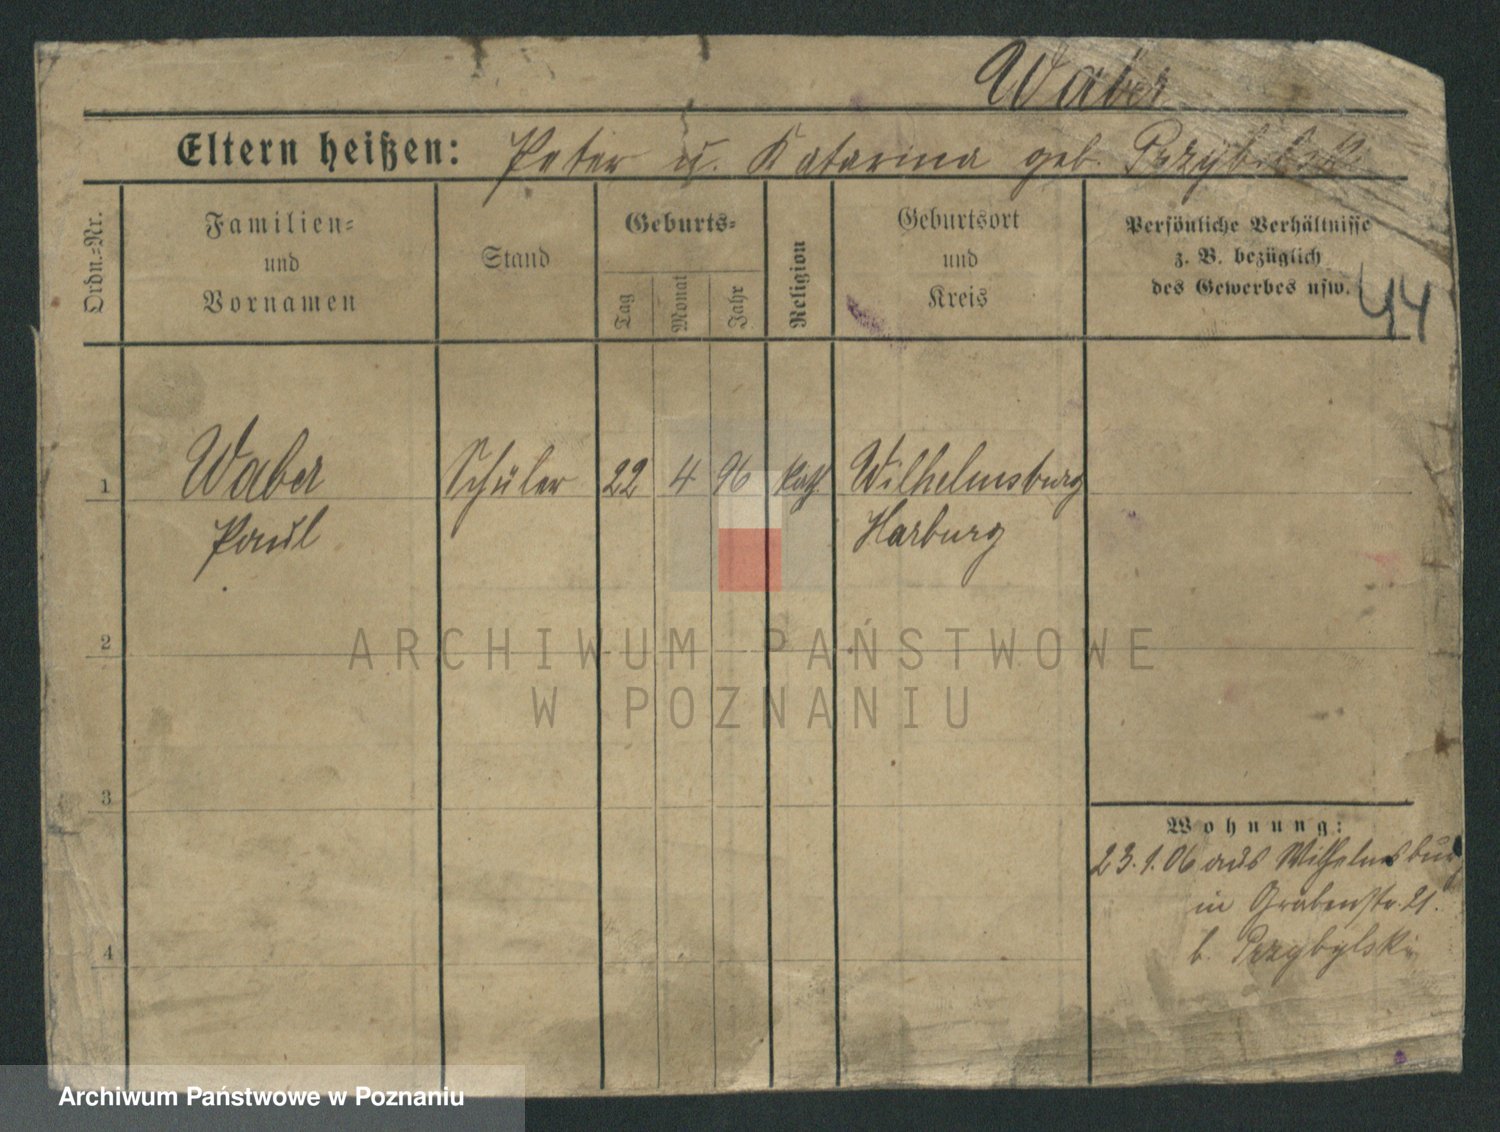 Waber
Eltern heißen: Peter u. Katarina geb. Przybylski
Ordn.=Nr.
Familien=
und
Vornamen
Stand
Geburts=
Tag
Monat
Jahr
Religion
Geburtsort
und
Kreis
Persönliche Verhältnisse
z. B. bezüglich
des Gewerbes usw.
44
1 Waber Schüler 22 4 96 kath. Wilhelmsburg
Paul Harburg
2
ARCHIWUM PAŃSTWOWE
W POZNANIU
3
Wohnung:
23.1.06 aus Wilhelmsburg
in Grabenstr. 21.
b. Przybylski
4
Archiwum Państwowe w Poznaniu